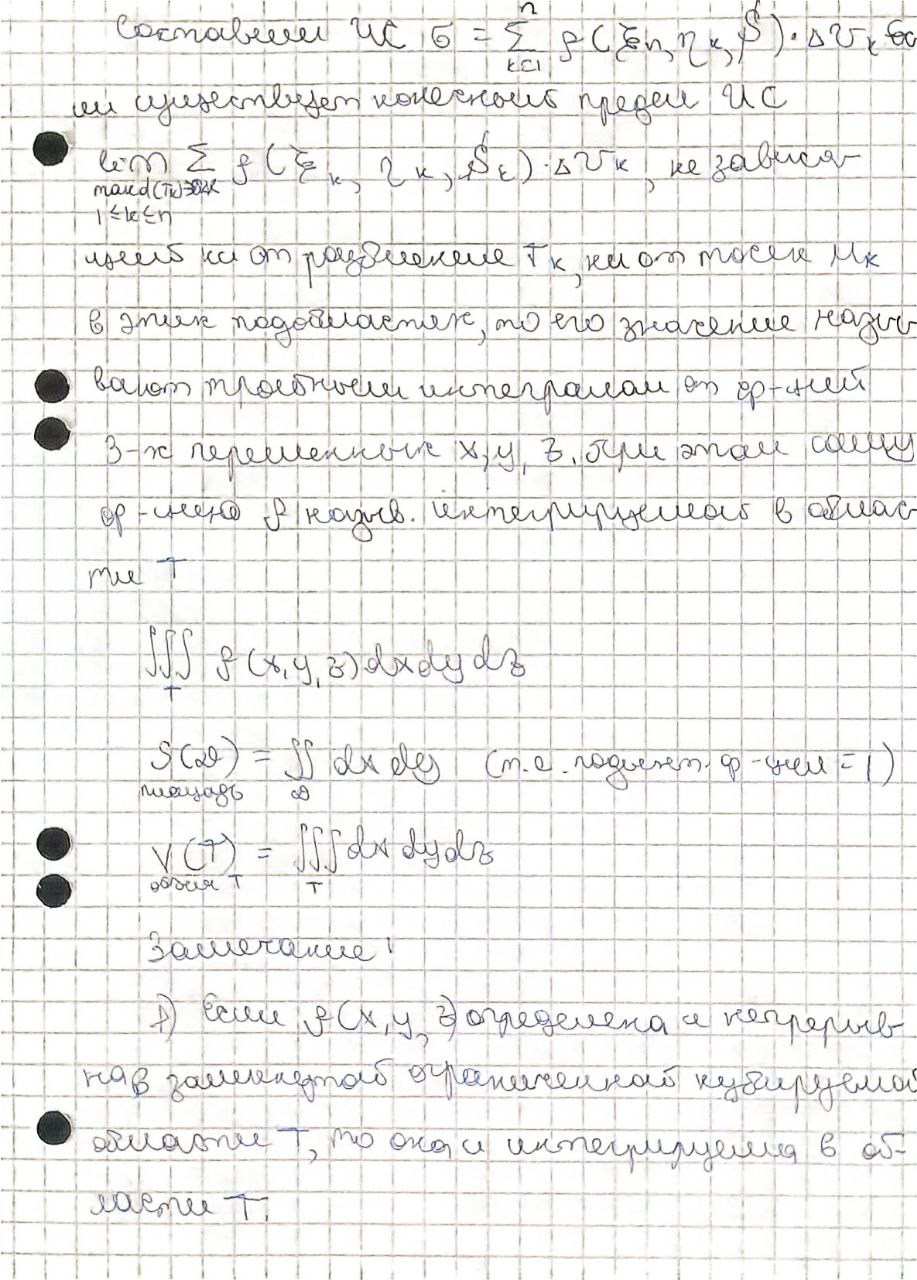 Составим ИС σ = Σ_{k=1}^{n} f(ξn, ηk, ζ)·ΔVk Ес
ли существует конечный предел ИС
lim Σ f(ξk, ηk, ζk)·ΔVk, не завися-
max d(Tk)→0
1≤k≤n
щий ни от разбиение Tk, ни от точек Mk
в этих подобластях, то его значение назы
вают тройным интегралом от ф-ций
3-х переменных x, y, z. При этом саму
ф-цию f назыв. интегрируемой в облас
ти T
∭_T f(x, y, z) dx dy dz
S(D) = ∬_D dx dy (т.е. подынт. ф-ция = 1)
площадь
V(T) = ∭_T dx dy dz
объём T
Замечание!
1) Если f(x, y, z) определена и непрерыв-
на в замкнутой ограниченной кубируемой
области T, то она и интегрируема в об-
ласти T.